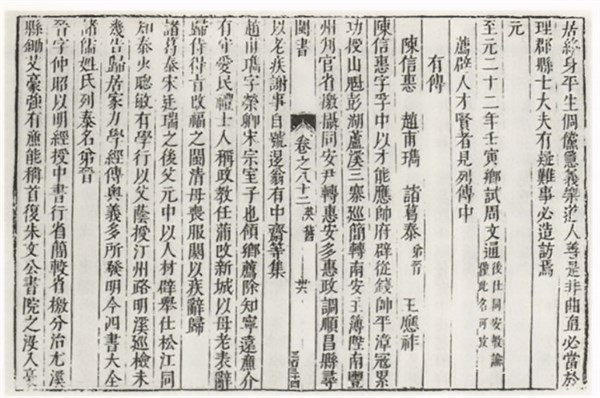 居終身平生倜儻慕義樂道人善是非曲直必當於
理郡縣士大夫有疑難事必造訪焉
元
至元二十二年壬寅鄉試周文通後仕同安教諭舊此名可攷
薦辟人才賢者見列傳中
有傳
陳信惠 趙甫璊 諸葛泰弟晉 王應祚
陳信惠字孚中以才能應帥府辟從錢帥平漳寇累
功授山魁彭湖蘆溪三寨巡簡轉南安主簿陞南豐
州判官省檄攝同安尹轉惠安多惠政調順昌縣尋
閩書 卷之八十二 英舊 卅六 三百三十四
以老疾謝事自號邃翁有中齋等集
趙甫璊字榮卿宋宗室子也領鄉薦除知寧遠簿介
有守愛民禮士人稱政教任蒲改新城以母老表辭
歸侍得旨改福之閩清母喪服闋以疾辭歸
諸葛泰宋廷瑞之後父元中以人材辟舉仕松江同
知泰火聰敏有學行以父蔭授汀州路明溪巡檢未
幾告歸居家力學經傳與義多所發明今四書大全
諸儒姓氏列泰名弟晉
晉字仲昭以明經授中書行省簡較省檄分治尤溪
縣鋤艾豪強有廉能稱首復朱文公書院之沒入豪